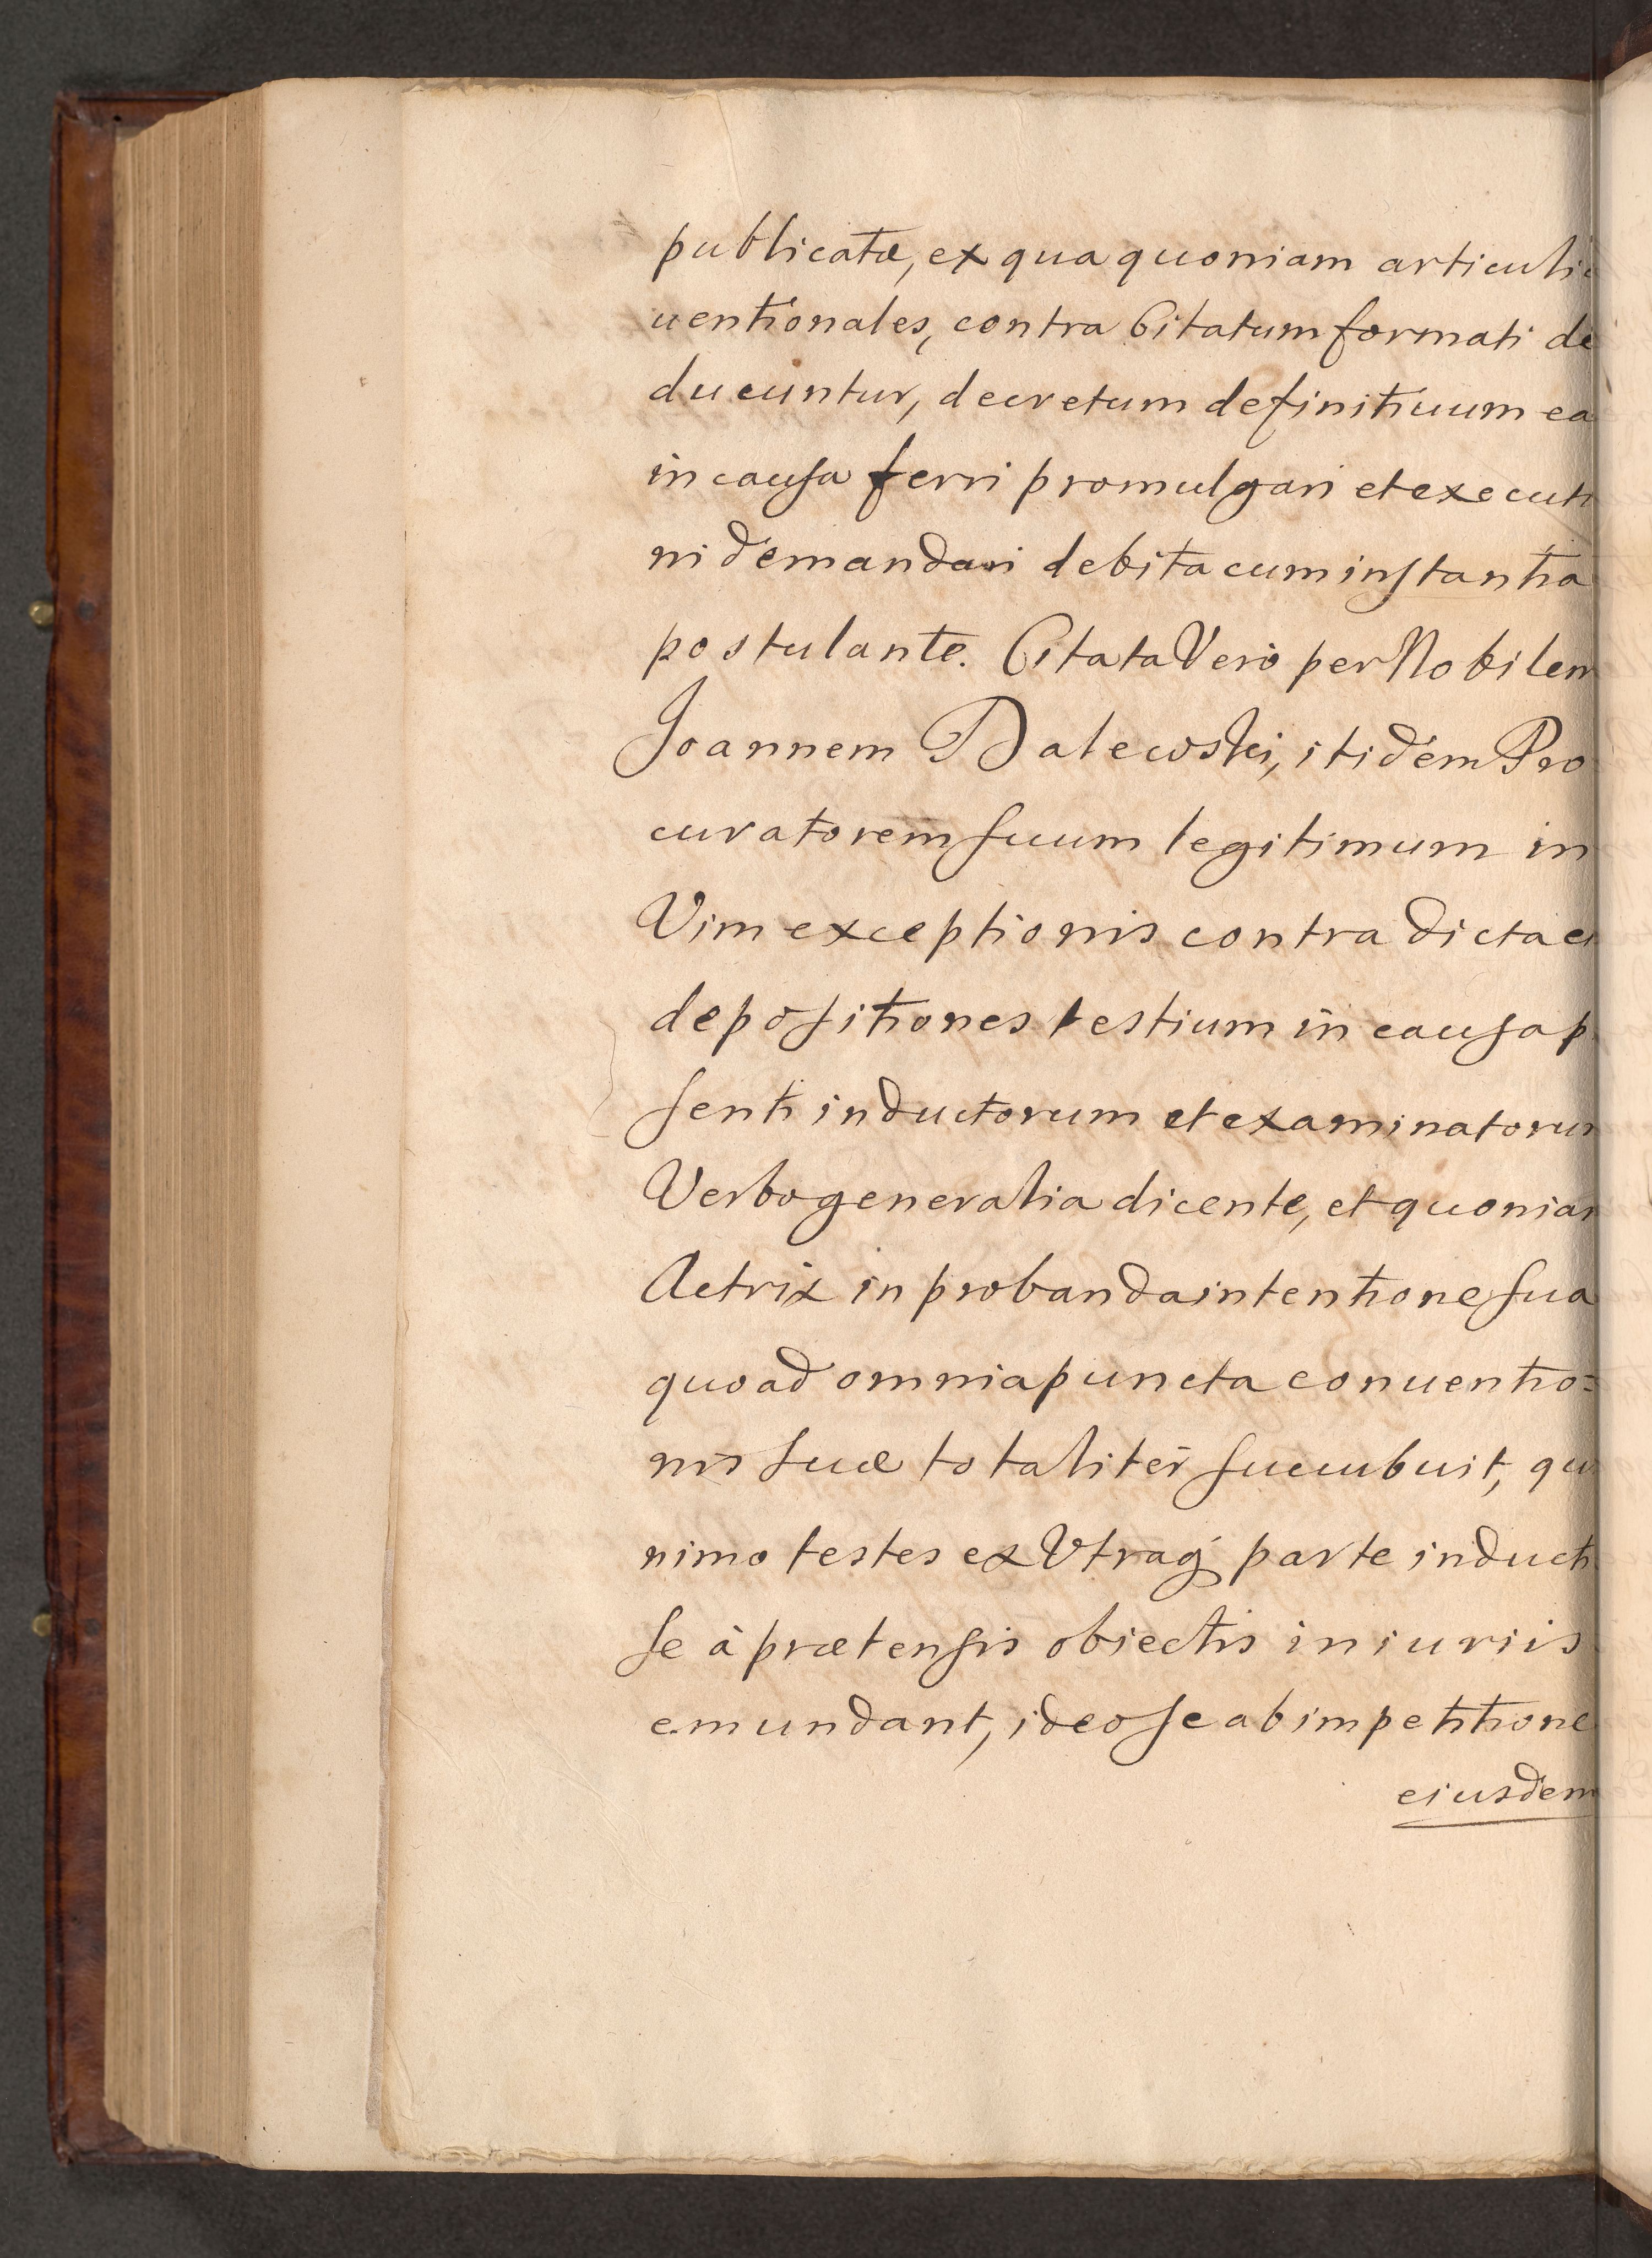 publicatæ, ex qua quoniam articuli
uentionales, contra Citatum formati de
ducuntur, decretum definitiuum ea
in causa ferri promulgari et executi
ni demandari debita cum instantia
postulante. Citata Verò per Nobilem
Joannem Dalewski, itidem Pro
curatorem suum legitimum in
Vim exceptionis contra dicta et
depositiones testium in causa p
senti inductorum et examinatorum
Verbo generalia dicente, et quoniam
Actrix in probanda intentione sua
quoad omnia puncta conuentio=
nis suæ totalitèr sucubuit, qu
nimo testes ex Vtraq; parte inducti
se à prætensis obiectis iniuriis
emundant, ideo se ab impetitione
eiusdem